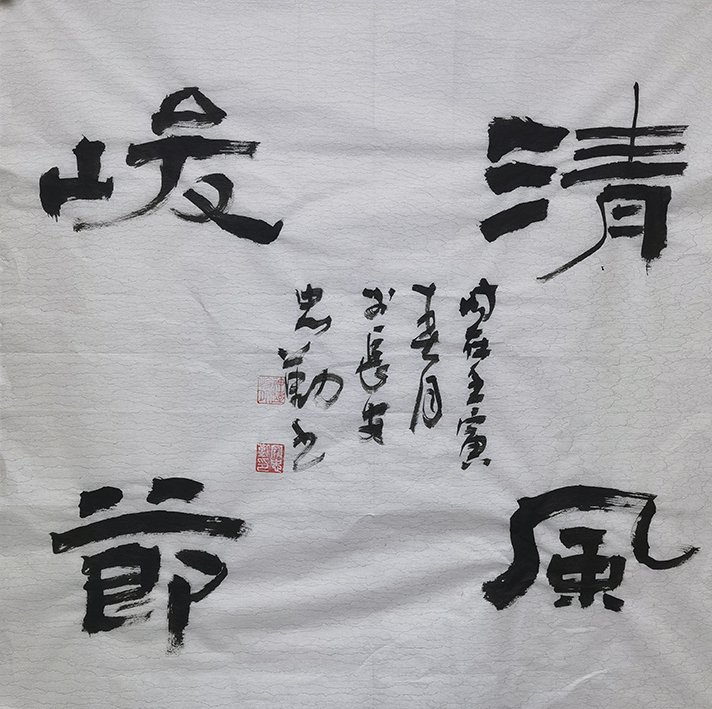 清風
峻節
時在壬寅
春月
於長安
忠勤书